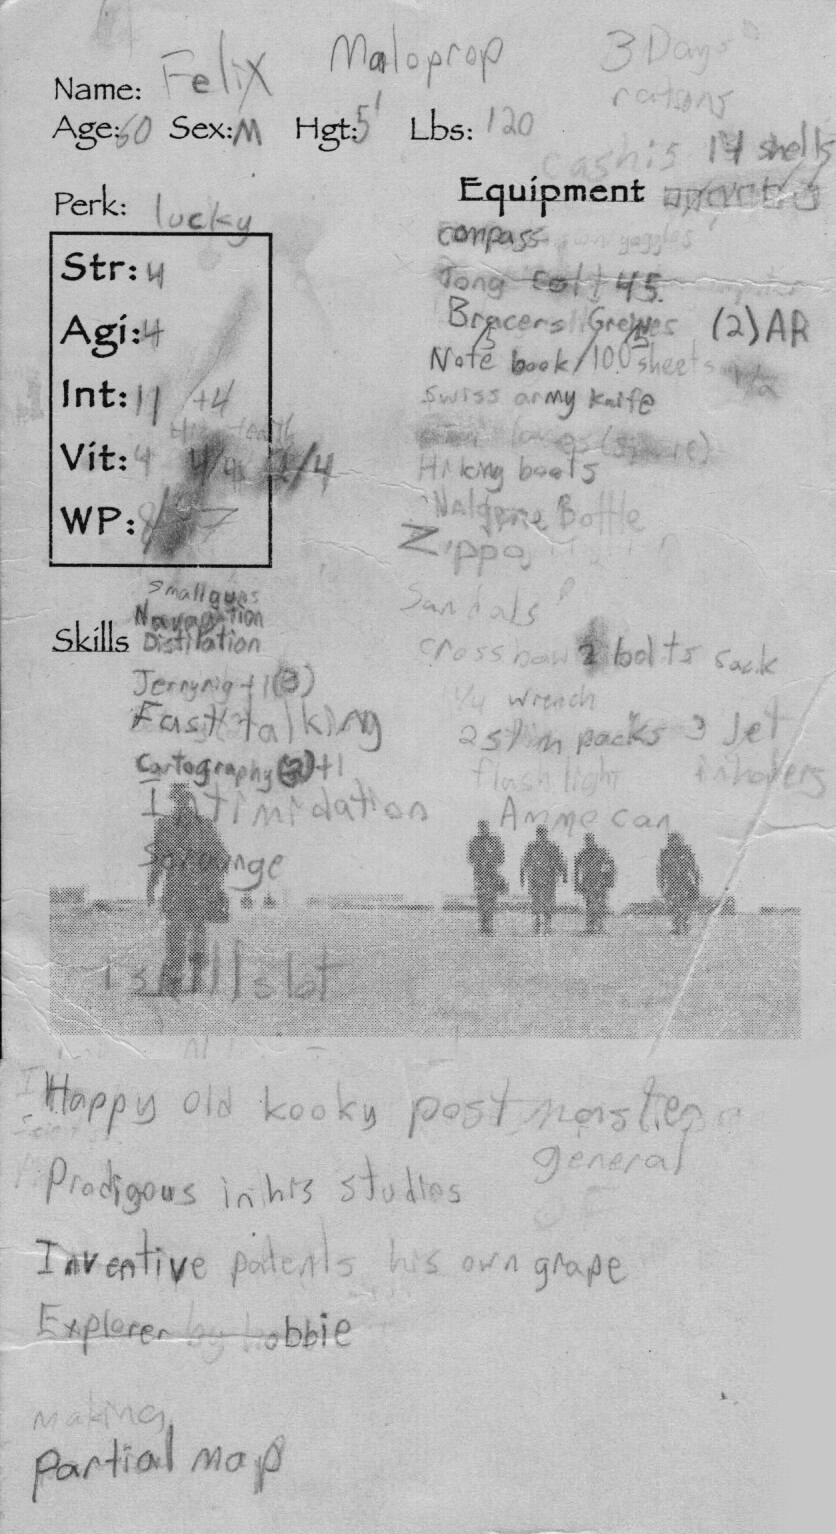 Name: Felix Maloprop
3 Days
rations
Age: 60 Sex: M Hgt: 5' Lbs: 120
cashis 14 shells
Perk: lucky
Equipment
compass
Str: 4
Agi: 4
Int: 11 +4
Vit: 4 4/4 2/4
WP: 8/7
Tong Colt 45
Bracers Greives (2) AR
Note book/100 sheets
swiss army knife
Hiking boots
Nalgene Bottle
Zippo
Sandals
crossbow 2 bolts sack
1/4 wrench
2 stim packs 3 Jet
flashlight inhalers
Ammo can
Skills
smallguns
Navagation
Distilation
Jerryrig +1 (3)
Fast talking
Cartography (3) +1
Intimidation
Scrounge
1 skill slot
Happy old kooky post master
general
Prodigous in his studies
Inventive patents his own grape
Explorer by hobbie
making
partial map